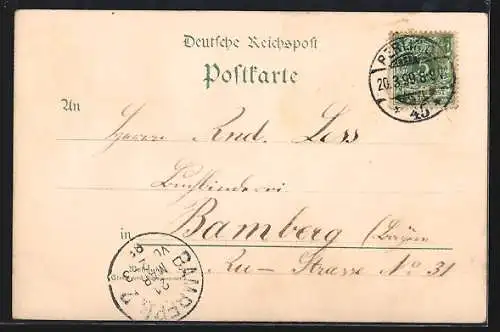 Deutsche Reichspost
Postkarte
An
Herrn Rud. Lers
Buchbinderei
in Bamberg (Bayern
Au-Strasse No 31
BERLIN
20.3.99.8-9V
* 43 *
BAMBERG
21 MRZ